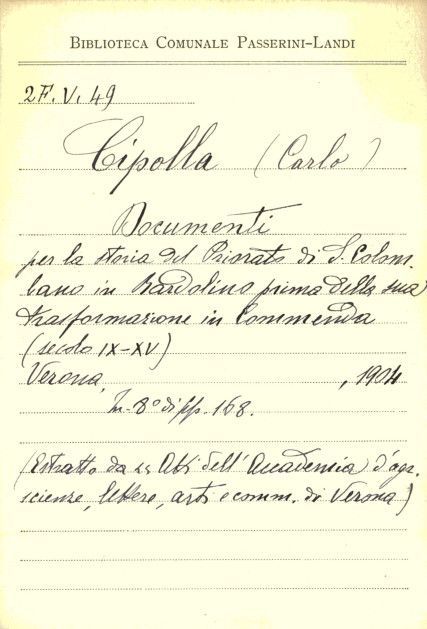 BIBLIOTECA COMUNALE PASSERINI-LANDI
2F.V.49
Cipolla (Carlo)
Documenti
per la storia del Priorato di S. Colom-
bano in Bardolino prima della sua
trasformazione in Commenda
(secolo IX-XV)
Verona, , 1904
In-8° di pp. 168.
(Estratto da Atti dell'Accademia d'agr.
scienze, lettere, arti e comm. di Verona)